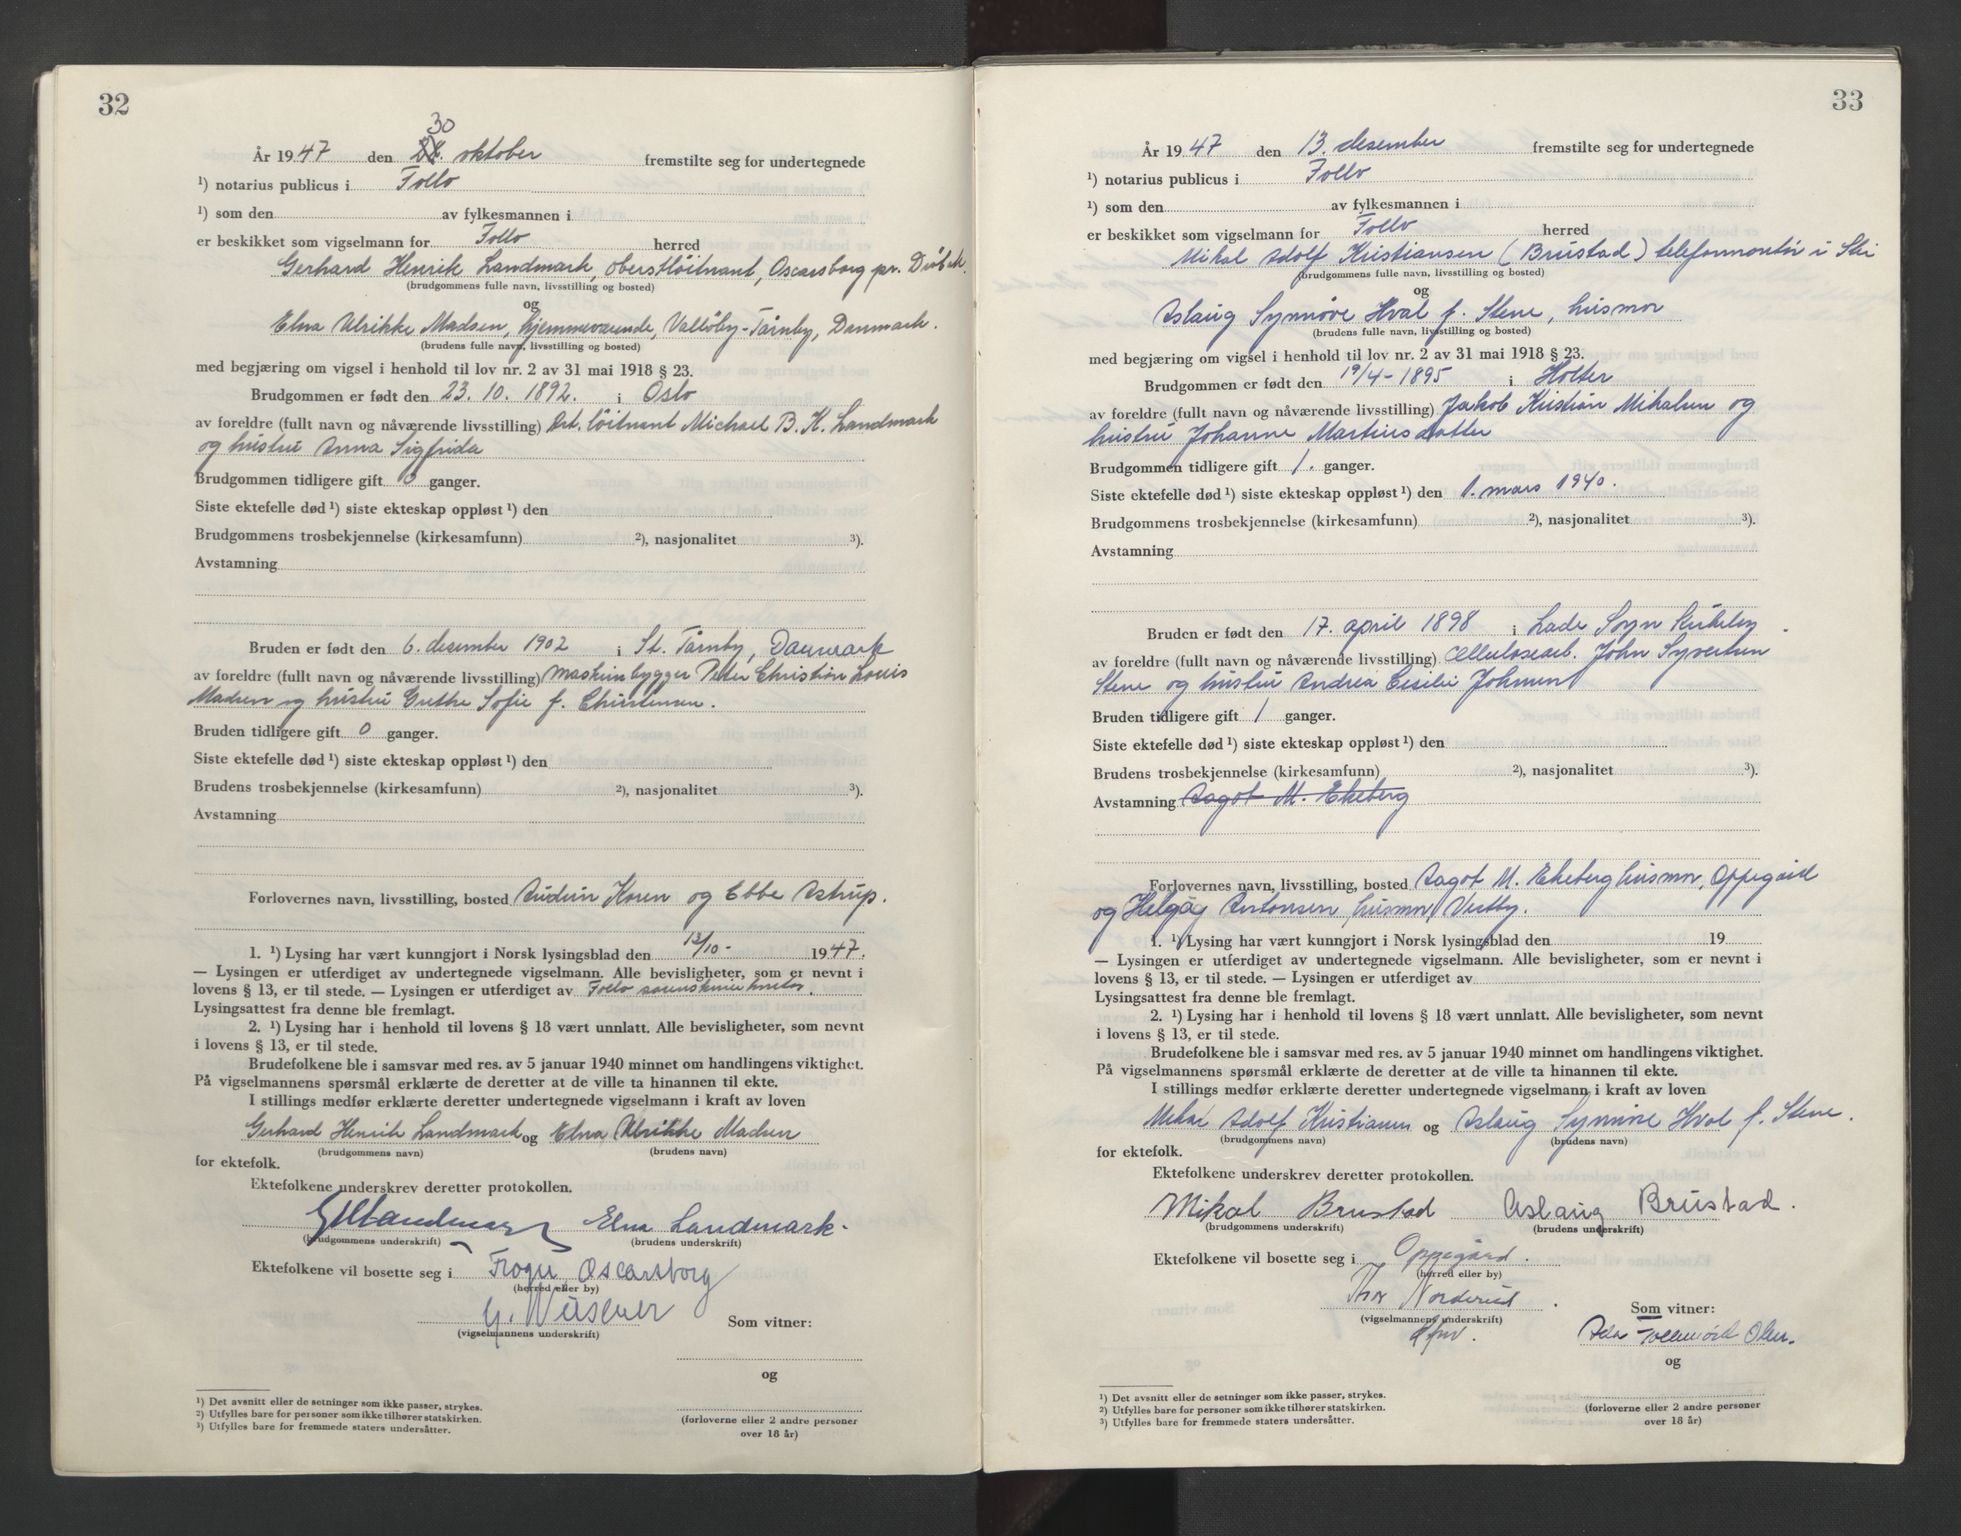 32
30
År 1947 den oktober fremstilte seg for undertegnede
¹) notarius publicus i Follo
¹) som den av fylkesmannen i
er beskikket som vigselmann for Follo herred
Gerhard Henrik Landmark, oberstløitnant, Oscarsborg pr. Drøbak.
(brudgommens fulle navn, livsstilling og bosted)
og
Elna Ulrikke Madsen, hjemmeværende, Vallöby-Tårnby, Danmark.
(brudens fulle navn, livsstilling og bosted)
med begjæring om vigsel i henhold til lov nr. 2 av 31 mai 1918 § 23.
Brudgommen er født den 23. 10. 1892. i Oslo
av foreldre (fullt navn og nåværende livsstilling) løitnant Michael B. K. Landmark
og hustru Anna Sigfrida
Brudgommen tidligere gift 0 ganger.
Siste ektefelle død ¹) siste ekteskap oppløst ¹) den
Brudgommens trosbekjennelse (kirkesamfunn) ²), nasjonalitet ³).
Avstamning
Bruden er født den 6. desember 1902 i St. Tårnby, Danmark
av foreldre (fullt navn og nåværende livsstilling) maskinbygger Peter Christian Louis
Madsen og hustru Grethe Sofie f. Christensen.
Bruden tidligere gift 0 ganger.
Siste ektefelle død ¹) siste ekteskap oppløst ¹) den
Brudens trosbekjennelse (kirkesamfunn) ²), nasjonalitet ³).
Avstamning
Forlovernes navn, livsstilling, bosted Audun Koren og Ebbe Astrup.
1. ¹) Lysing har vært kunngjort i Norsk lysingsblad den 13/10- 1947.
— Lysingen er utferdiget av undertegnede vigselmann. Alle bevisligheter, som er nevnt i
lovens § 13, er til stede. — Lysingen er utferdiget av Follo sorenskriverkontor.
Lysingsattest fra denne ble fremlagt.
2. ¹) Lysing har i henhold til lovens § 18 vært unnlatt. Alle bevisligheter, som nevnt
i lovens § 13, er til stede.
Brudefolkene ble i samsvar med res. av 5 januar 1940 minnet om handlingens viktighet.
På vigselmannens spørsmål erklærte de deretter at de ville ta hinannen til ekte.
I stillings medfør erklærte deretter undertegnede vigselmann i kraft av loven
Gerhard Henrik Landmark og Elna Ulrikke Madsen
(brudgommens navn) (brudens navn)
for ektefolk.
Ektefolkene underskrev deretter protokollen.
GHLandmark Elna Landmark.
(brudgommens underskrift) (brudens underskrift)
Ektefolkene vil bosette seg i Frogn Oscarsborg
(herred eller by)
(vigselmannens underskrift)
Som vitner:
og
(forloverne eller 2 andre personer
over 18 år)
¹) Det avsnitt eller de setninger som ikke passer, strykes.
²) Utfylles bare for personer som ikke tilhører statskirken.
³) Utfylles bare for fremmede staters undersåtter.
33
År 1947 den 13. desember fremstilte seg for undertegnede
¹) notarius publicus i Follo
¹) som den av fylkesmannen i
er beskikket som vigselmann for Follo herred
Mikal Adolf Kristiansen (Brustad) telefonmontør i Ski
(brudgommens fulle navn, livsstilling og bosted)
og
Aslaug Synnøve Hval f. Stene, husmor
(brudens fulle navn, livsstilling og bosted)
med begjæring om vigsel i henhold til lov nr. 2 av 31 mai 1918 § 23.
Brudgommen er født den 19/4-1895 i Holter
av foreldre (fullt navn og nåværende livsstilling) Jakob Kristian Mikalsen og
hustru Johanne Martinsdatter
Brudgommen tidligere gift 1. ganger.
Siste ektefelle død ¹) siste ekteskap oppløst ¹) den 1. mars 1940.
Brudgommens trosbekjennelse (kirkesamfunn) ²), nasjonalitet ³).
Avstamning
Bruden er født den 17. april 1898 i Lade Sogn
av foreldre (fullt navn og nåværende livsstilling) Cellulosearb. John Syvertsen
Stene og hustru Andrea Cesilie Johnsen
Bruden tidligere gift 1 ganger.
Siste ektefelle død ¹) siste ekteskap oppløst ¹) den
Brudens trosbekjennelse (kirkesamfunn) ²), nasjonalitet ³).
Avstamning Aagot M. Ekeberg
Forlovernes navn, livsstilling, bosted Aagot M. Ekeberg husmor, Oppegård
og Helga Antonsen, husmor, Vestby.
1. ¹) Lysing har vært kunngjort i Norsk lysingsblad den 19
— Lysingen er utferdiget av undertegnede vigselmann. Alle bevisligheter, som er nevnt i
lovens § 13, er til stede. — Lysingen er utferdiget av
Lysingsattest fra denne ble fremlagt.
2. ¹) Lysing har i henhold til lovens § 18 vært unnlatt. Alle bevisligheter, som nevnt
i lovens § 13, er til stede.
Brudefolkene ble i samsvar med res. av 5 januar 1940 minnet om handlingens viktighet.
På vigselmannens spørsmål erklærte de deretter at de ville ta hinannen til ekte.
I stillings medfør erklærte deretter undertegnede vigselmann i kraft av loven
Mikal Adolf Kristiansen og Aslaug Synnøve Hval f. Stene.
(brudgommens navn) (brudens navn)
for ektefolk.
Ektefolkene underskrev deretter protokollen.
Mikal Brustad Aslaug Brustad.
(brudgommens underskrift) (brudens underskrift)
Ektefolkene vil bosette seg i Oppegård.
(herred eller by)
Thor Norderud
(vigselmannens underskrift)
Som vitner:
og
(forloverne eller 2 andre personer
over 18 år)
¹) Det avsnitt eller de setninger som ikke passer, strykes.
²) Utfylles bare for personer som ikke tilhører statskirken.
³) Utfylles bare for fremmede staters undersåtter.